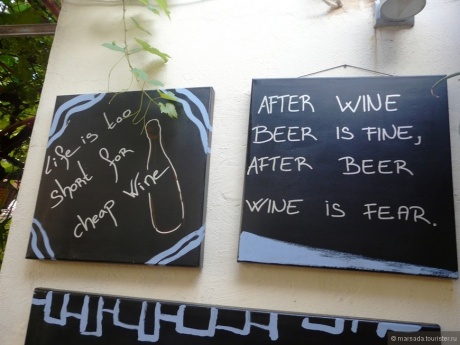 Life is too
short for
cheap wine
AFTER WINE
BEER IS FINE,
AFTER BEER
WINE IS FEAR.
© marsada.tourister.ru